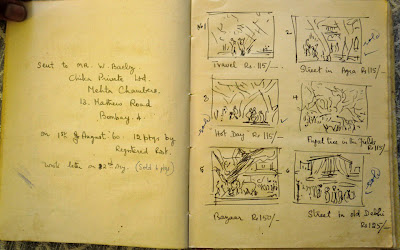 Sent to MR. W. Barley
Private Ltd.
Mehta Chambers.
13. Mathew Road
Bombay. 4.
on 1st of August '60. 12 ptgs by
Registered Post.
Work later on 22nd Aug. (Sold 4 ptgs)
No 1
Travel Rs. 115/-
2.
Sold
Street in Agra Rs 175/-
3
Sold
Hot Day Rs 115/-
4
Pipal Tree in the Fields
Rs 115/-
5
Bazaar Rs 150/-
6
Sold
Street in old Delhi
Rs 125/-